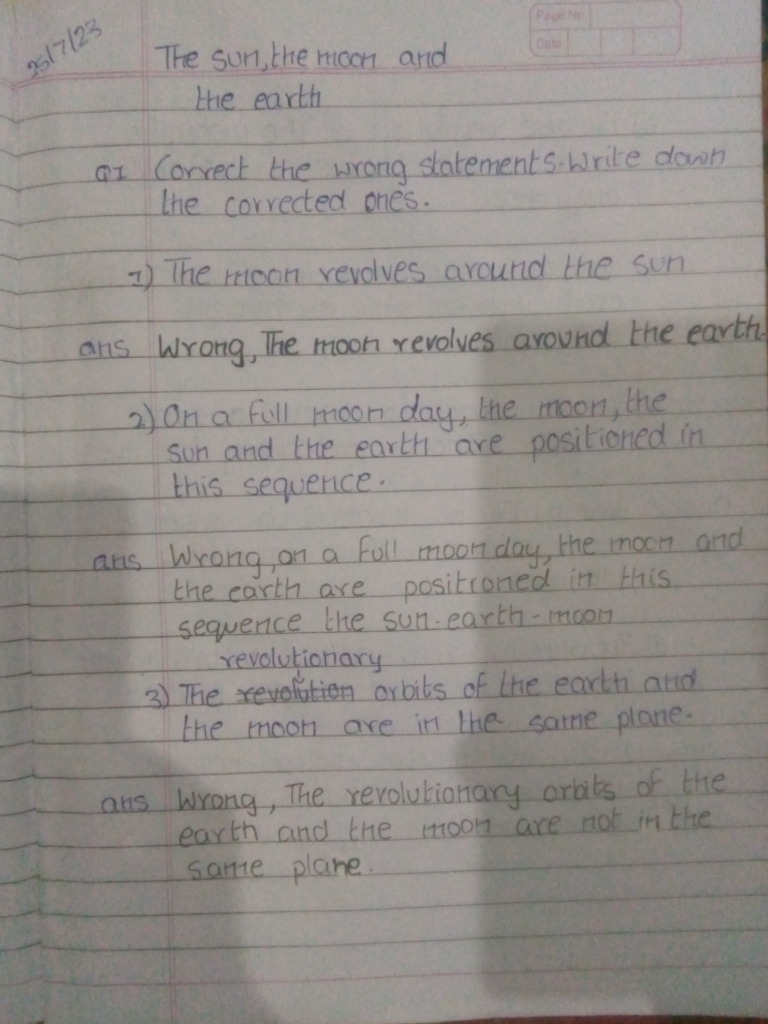 Page No.
Date
25/7/23
The sun, the moon and
the earth
Q1 Correct the wrong statements. Write down
the corrected ones.
1) The moon revolves around the sun
ans Wrong, The moon revolves around the earth.
2) On a full moon day, the moon, the
sun and the earth are positioned in
this sequence.
ans Wrong, on a full moon day, the moon and
the earth are positioned in this
sequence the sun-earth-moon
revolutionary
3) The revolution orbits of the earth and
the moon are in the same plane.
ans Wrong, The revolutionary orbits of the
earth and the moon are not in the
same plane.